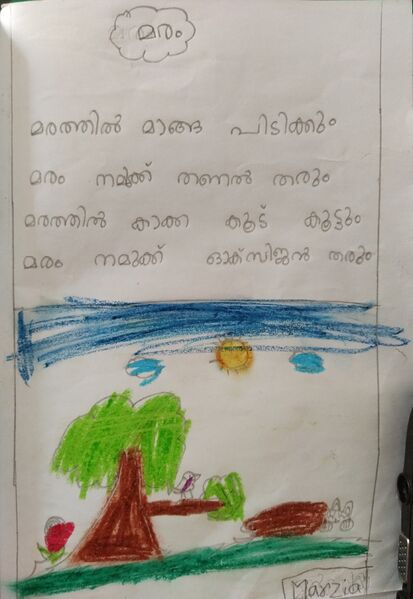 മരം
മരത്തിൽ മാങ്ങ പിടിക്കും
മരം നമുക്ക് തണൽ തരും
മരത്തിൽ കാക്ക കൂട് കൂട്ടും
മരം നമുക്ക് ഓക്സിജൻ തരും
Marzia